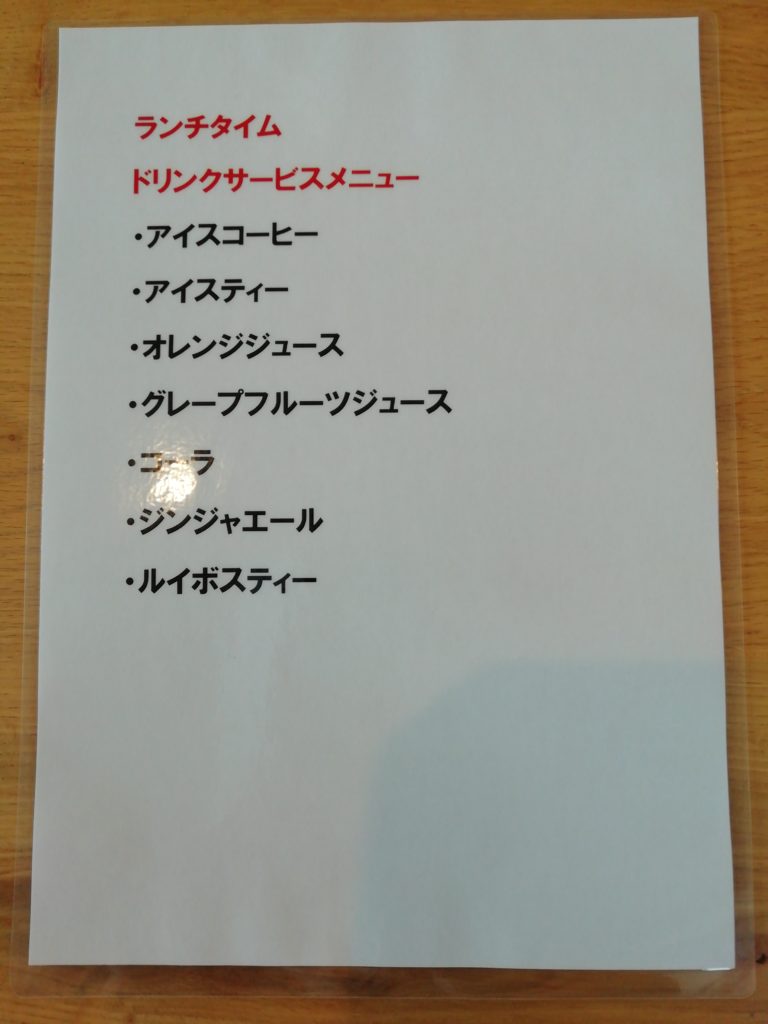 ランチタイム
ドリンクサービスメニュー
・アイスコーヒー
・アイスティー
・オレンジジュース
・グレープフルーツジュース
・コーラ
・ジンジャエール
・ルイボスティー